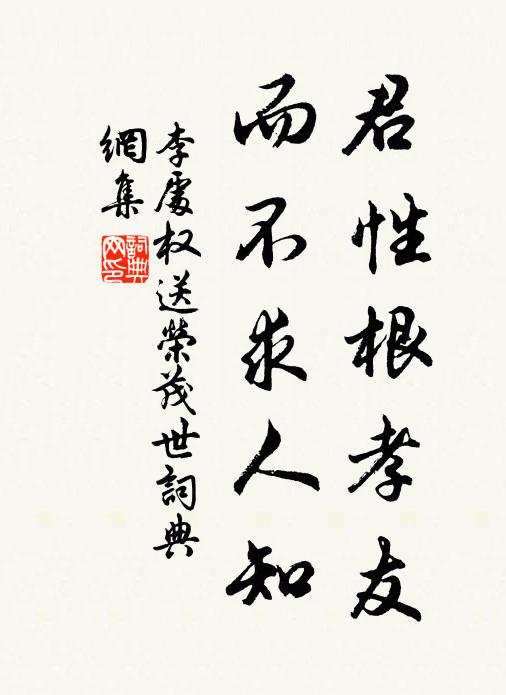 君性根孝友
而不求人知
李處权送榮茂世詞典
網集
詞典
网印